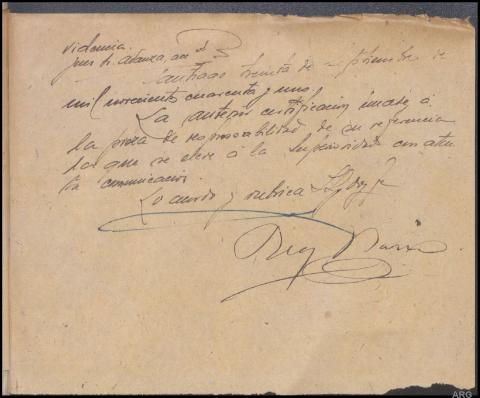 videncia.
Santiago treinta de septiembre de
mil novecientos cuarenta y uno.
La anterior certificación únase a
la pieza de responsabilidad de su referencia
las que se eleve a la Superioridad con aten
ta comunicación.
Lo acordó y rubrica S.Sª doy fe
ARG